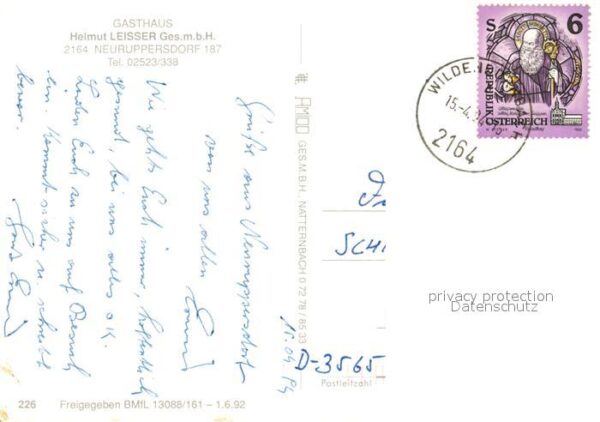 GASTHAUS
Helmut LEISSER Ges.m.b.H.
2164 NEURUPPERSDORF 187
Tel. 02523/338
Grüße aus Neuruppersdorf
von uns allen
Wie geht's Euch immer, hoffentlich
gesund, bei uns alles ok.
Laden Euch zu uns auf Besuch
ein. Kommt vorher u. schreibt
bevor.
15.04.94
AMIDO GES.M.B.H. NATTERNBACH 0 72 78 / 85 33
S 6
REPUBLIK
ÖSTERREICH
WILDEND
15.-4.
2164
SCHI
D-3565
Postleitzahl
privacy protection
Datenschutz
226 Freigegeben BMfL 13088/161 – 1.6.92